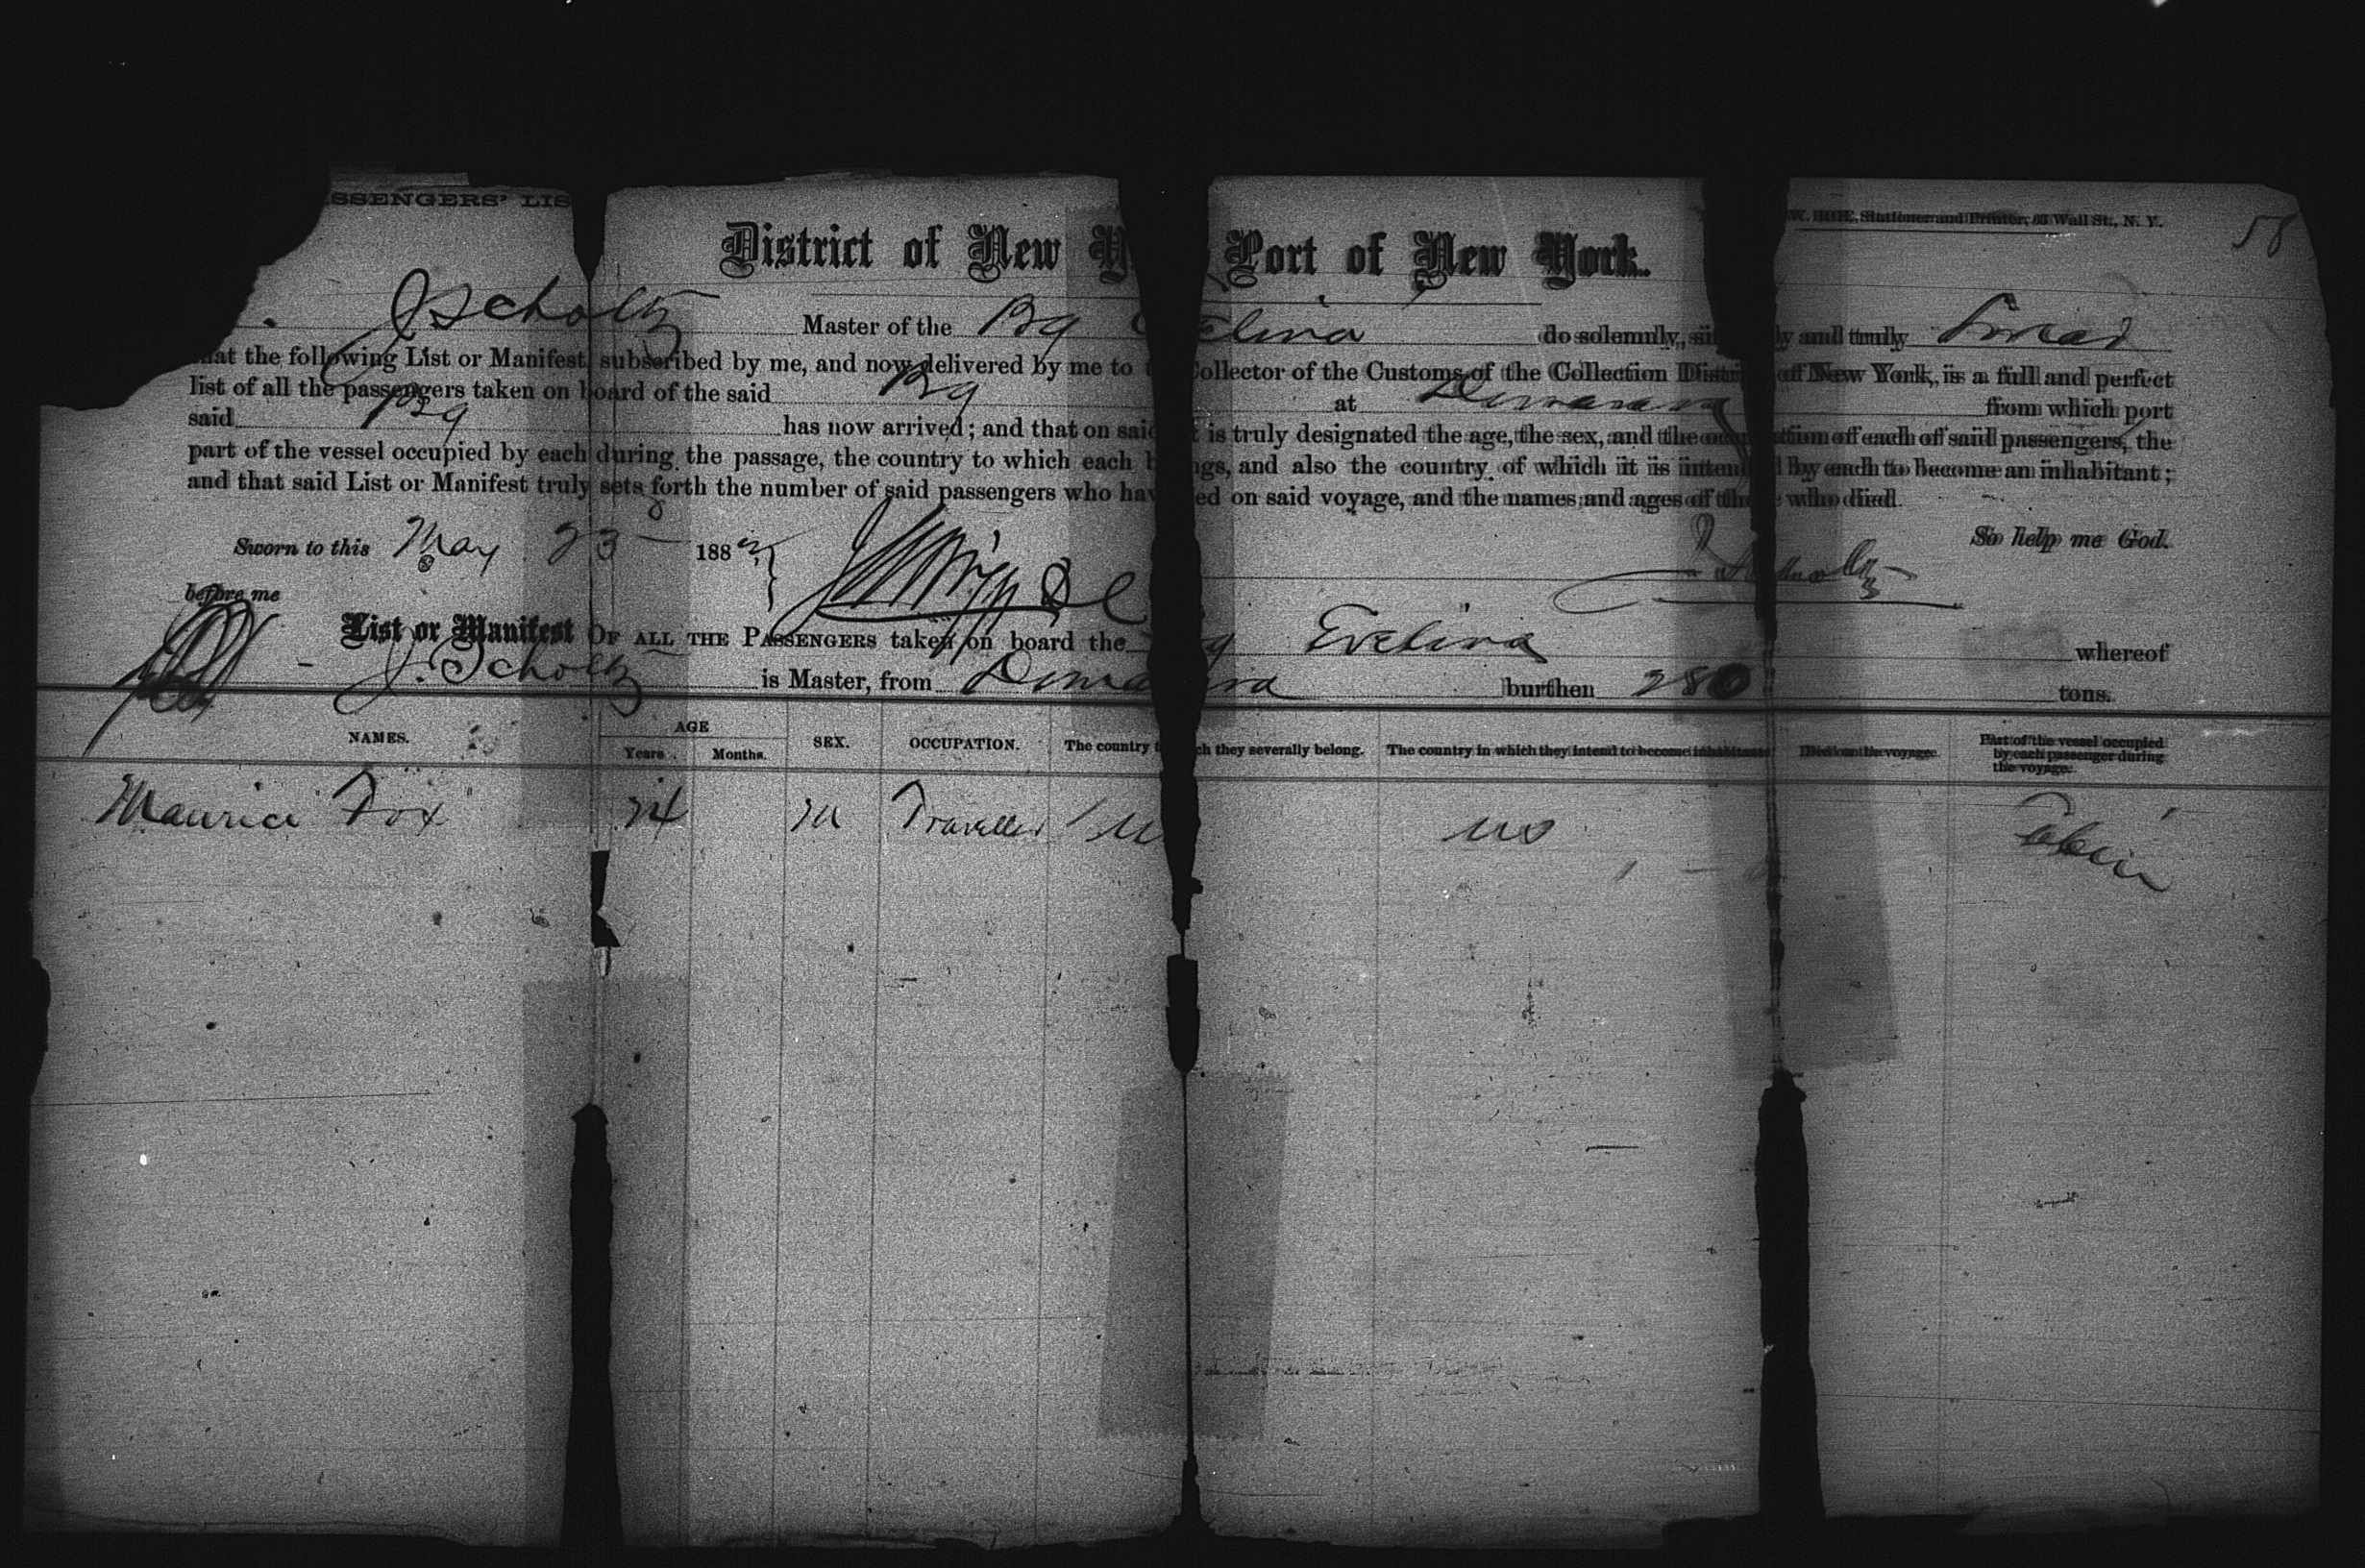 SSENGERS' LIS
Stationer and Printer, Wall St., N. Y.
58
District of New Y Port of New York.
J Scholtz Master of the Bg Evelina do solemnly, si ly and truly Swear
that the following List or Manifest, subscribed by me, and now delivered by me to t Collector of the Customs of the Collection Distri of New York, is a full and perfect
list of all the passengers taken on board of the said Bg at Demarara from which port
said Bg has now arrived; and that on said t is truly designated the age, the sex, and the occupation of each of said passengers, the
part of the vessel occupied by each during the passage, the country to which each b ngs, and also the country of which it is inten d by each to become an inhabitant;
and that said List or Manifest truly sets forth the number of said passengers who hav ed on said voyage, and the names and ages of tho e who died.
So help me God.
Sworn to this May 23 188
before me
List or Manifest OF ALL THE PASSENGERS taken on board the g Evelina whereof
J. Scholtz is Master, from Demarara burthen 280 tons.
NAMES. AGE Years. Months. SEX. OCCUPATION. The country t ch they severally belong. The country in which they intend to become inhabitants Died on the voyage. Part of the vessel occupied by each passenger during the voyage.
Maurice Fox 24 M Traveller U US Cabin